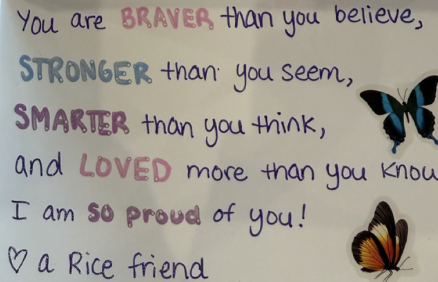 You are BRAVER than you believe,
STRONGER than you seem,
SMARTER than you think,
and LOVED more than you know
I am so proud of you!
♡ a Rice friend